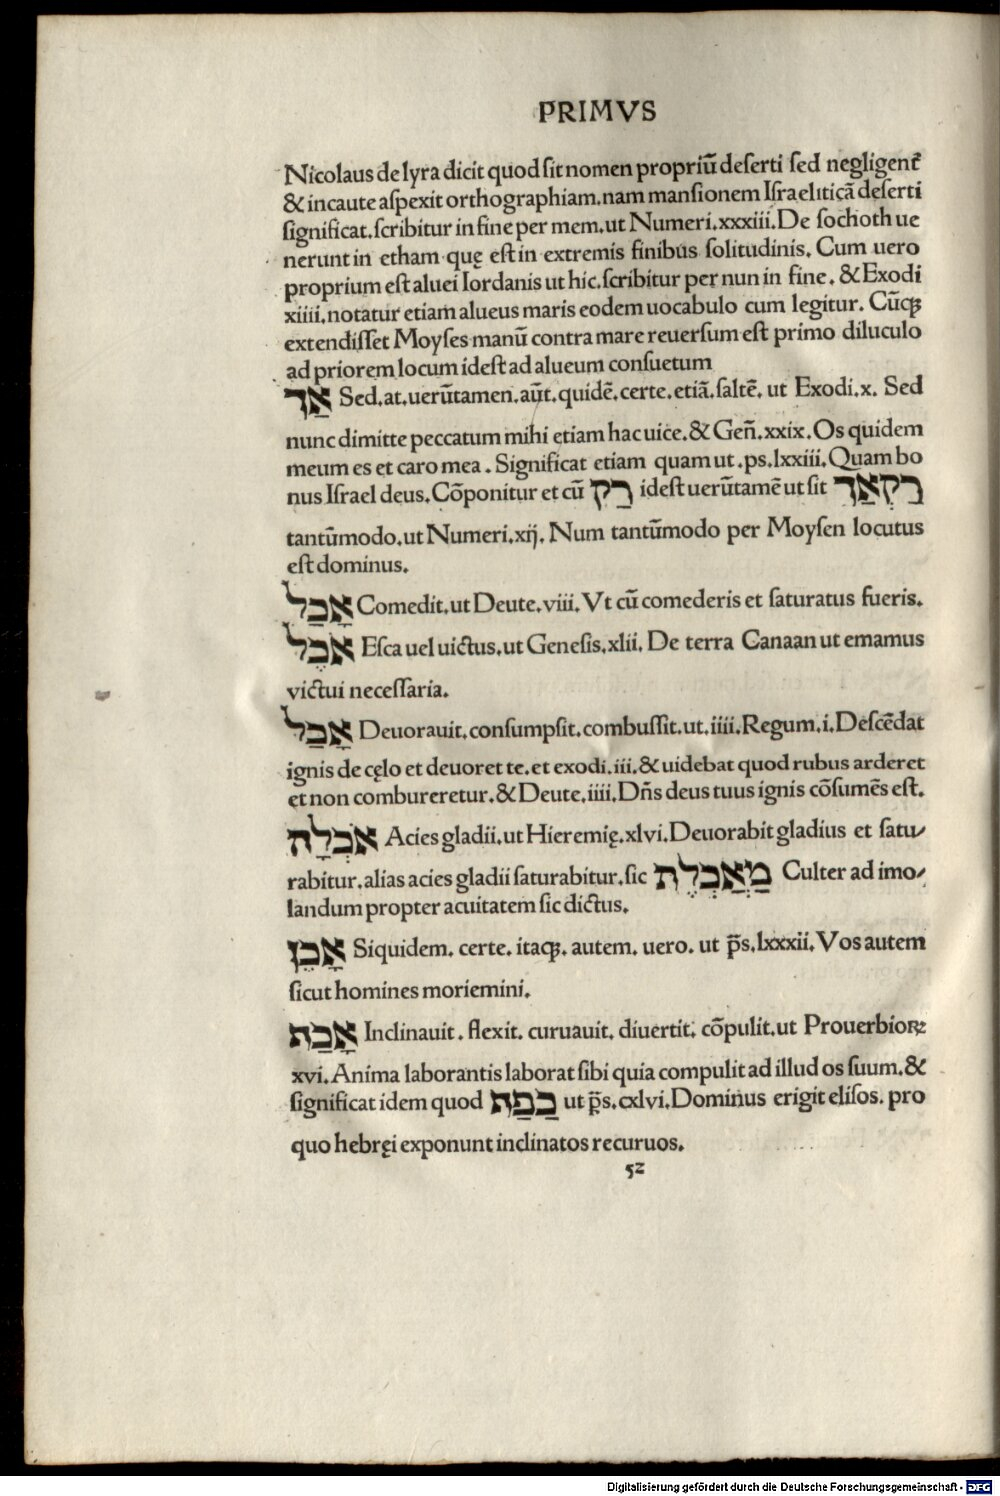 PRIMVS
Nicolaus de lyra dicit quod sit nomen propriū deserti sed negligent̃
& incaute aspexit orthographiam.nam mansionem Israeliticā deserti
significat.scribitur in fine per mem.ut Numeri.xxxiii.De sochoth ue
nerunt in etham quę est in extremis finibus solitudinis. Cum uero
proprium est aluei Iordanis ut hic.scribitur per nun in fine. & Exodi
xiiii.notatur etiam alueus maris eodem uocabulo cum legitur. Cūqꝫ
extendisset Moyses manū contra mare reuersum est primo diluculo
ad priorem locum idest ad alueum consuetum
אַך Sed.at.uerūtamen.aūt.quidē.certe.etiā.saltē. ut Exodi.x. Sed
nunc dimitte peccatum mihi etiam hac uice.& Geñ.xxix.Os quidem
meum es et caro mea . Significat etiam quam ut .ps.lxxiii.Quam bo
nus Israel deus.Cōponitur et cū רַק idest uerūtamē ut sit רַקְאַך
tantūmodo.ut Numeri.xij. Num tantūmodo per Moysen locutus
est dominus.
אָכַל Comedit.ut Deute.viii. Vt cū comederis et saturatus fueris.
אֹכֶל Esca uel uictus.ut Genesis.xlii. De terra Canaan ut emamus
victui necessaria.
אָכַל Deuorauit.consumpsit.combussit.ut.iiii.Regum.i.Descēdat
ignis de cęlo et deuoret te.et exodi.iii.& uidebat quod rubus arderet
et non combureretur.& Deute.iiii.Dñs deus tuus ignis cōsumēs est.
אֹכְלָה Acies gladii.ut Hieremię.xlvi.Deuorabit gladius et satu-
rabitur.alias acies gladii saturabitur.sic מַאֲכְלֶת Culter ad imo-
landum propter acuitatem sic dictus.
אָכֵן Siquidem. certe. itaqꝫ. autem. uero. ut p̄s.lxxxii.Vos autem
sicut homines moriemini.
אָכַת Inclinauit . flexit. curuauit. diuertit. cōpulit.ut Prouerbioꝝ
xvi.Anima laborantis laborat sibi quia compulit ad illud os suum.&
significat idem quod כַפַת ut p̄s.cxlvi.Dominus erigit elisos. pro
quo hebręi exponunt inclinatos recuruos.
52
Digitalisierung gefördert durch die Deutsche Forschungsgemeinschaft - DFG